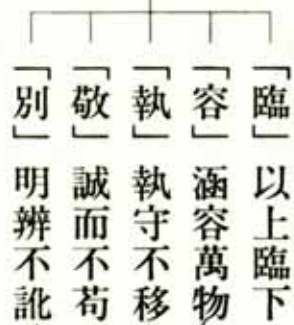 「臨」以上臨下
「容」涵容萬物
「執」執守不移
「敬」誠而不苟
「別」明辨不訛